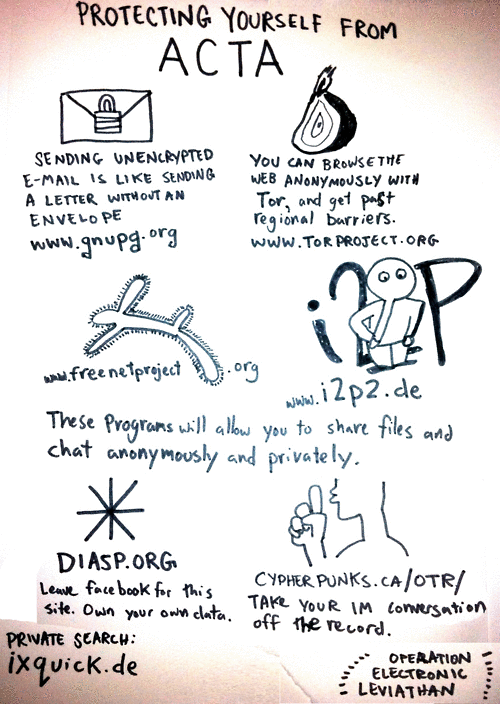 PROTECTING YOURSELF FROM
ACTA
SENDING UNENCRYPTED
E-MAIL IS LIKE SENDING
A LETTER WITHOUT AN
ENVELOPE
www.gnupg.org
YOU CAN BROWSE THE
WEB ANONYMOUSLY WITH
Tor, and get past
regional barriers.
WWW.TORPROJECT.ORG
www.freenetproject.org
i2P
www.i2p2.de
These Programs will allow you to share files and
chat anonymously and privately.
DIASP.ORG
Leave facebook for this
site. Own your own data.
CYPHERPUNKS.CA/OTR/
TAKE YOUR IM conversation
off the record.
PRIVATE SEARCH:
ixquick.de
OPERATION
ELECTRONIC
LEVIATHAN